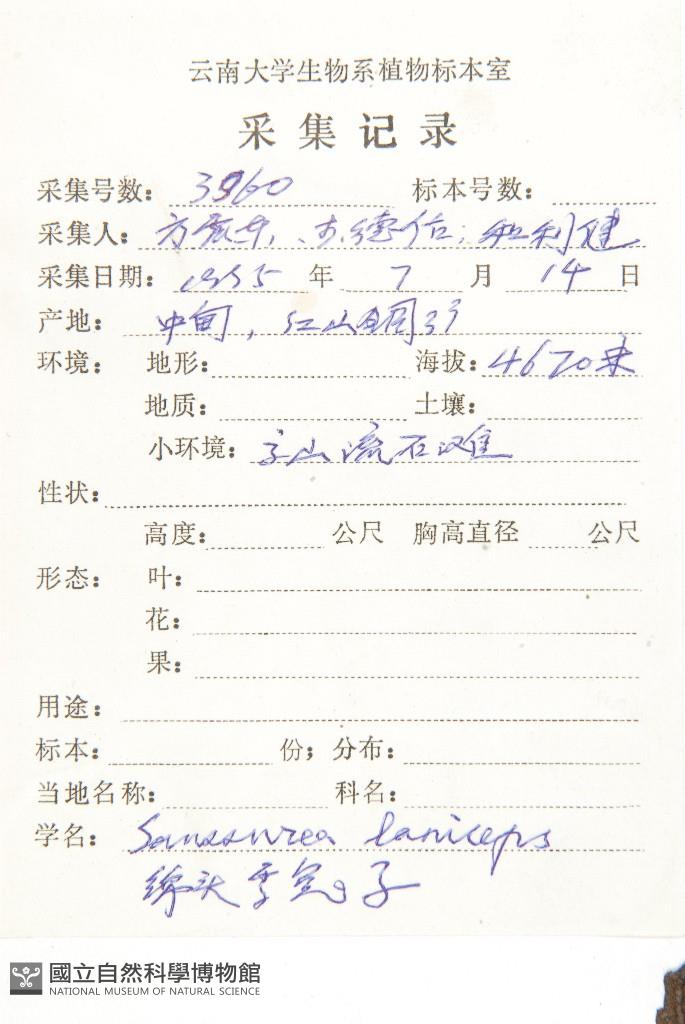 云南大学生物系植物标本室
采集记录
采集号数: 3960 标本号数:
采集人: 方震东、 德 ; 和利健
采集日期: 1995 年 7 月 14 日
产地: 中甸, 红山
环境: 地形: 海拔: 4670米
地质: 土壤:
小环境: 高山流石滩
性状:
高度: 公尺 胸高直径 公尺
形态: 叶:
花:
果:
用途:
标本: 份; 分布:
当地名称: 科名:
学名: Saussurea laniceps
绵头雪兔子
國立自然科學博物館
NATIONAL MUSEUM OF NATURAL SCIENCE